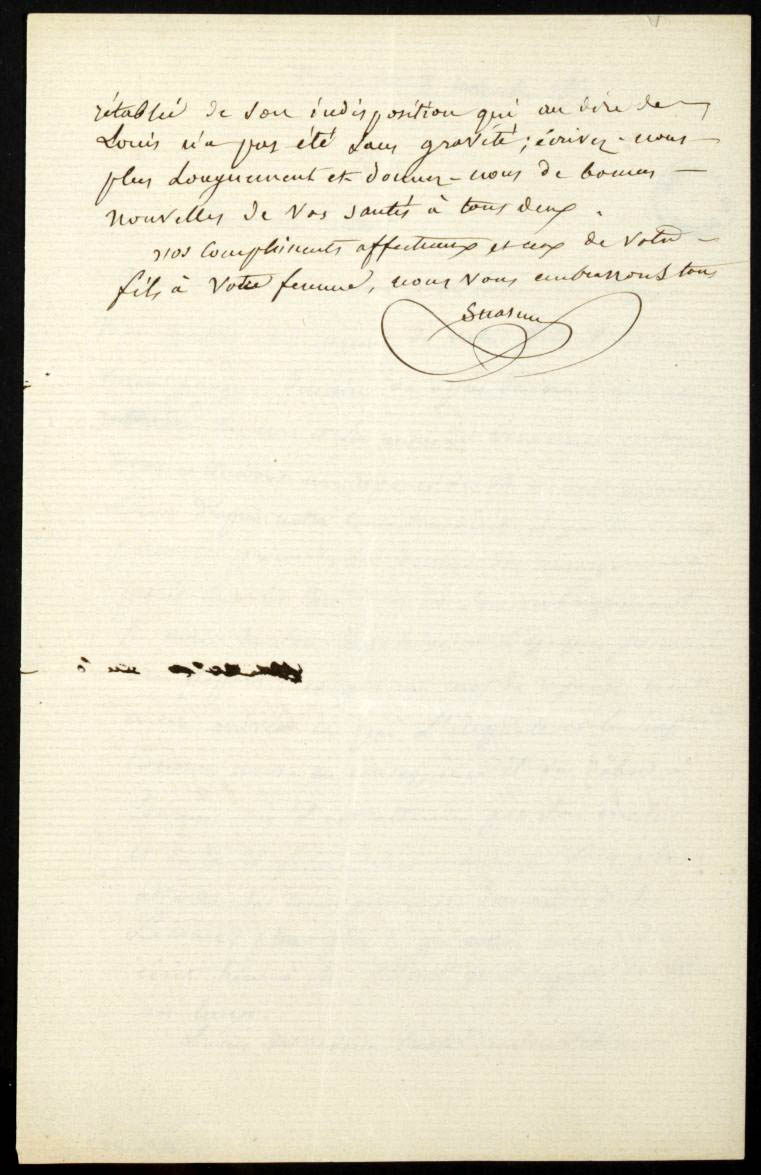 rétablie de son indisposition qui au dire de
Louis n'a pas été sans gravité; écrivez-nous
plus longuement et donnez-nous de bonnes
nouvelles de vos santés à tous deux.
nos compliments affectueux et ceux de votre
fils à votre femme, nous vous embrassons tous